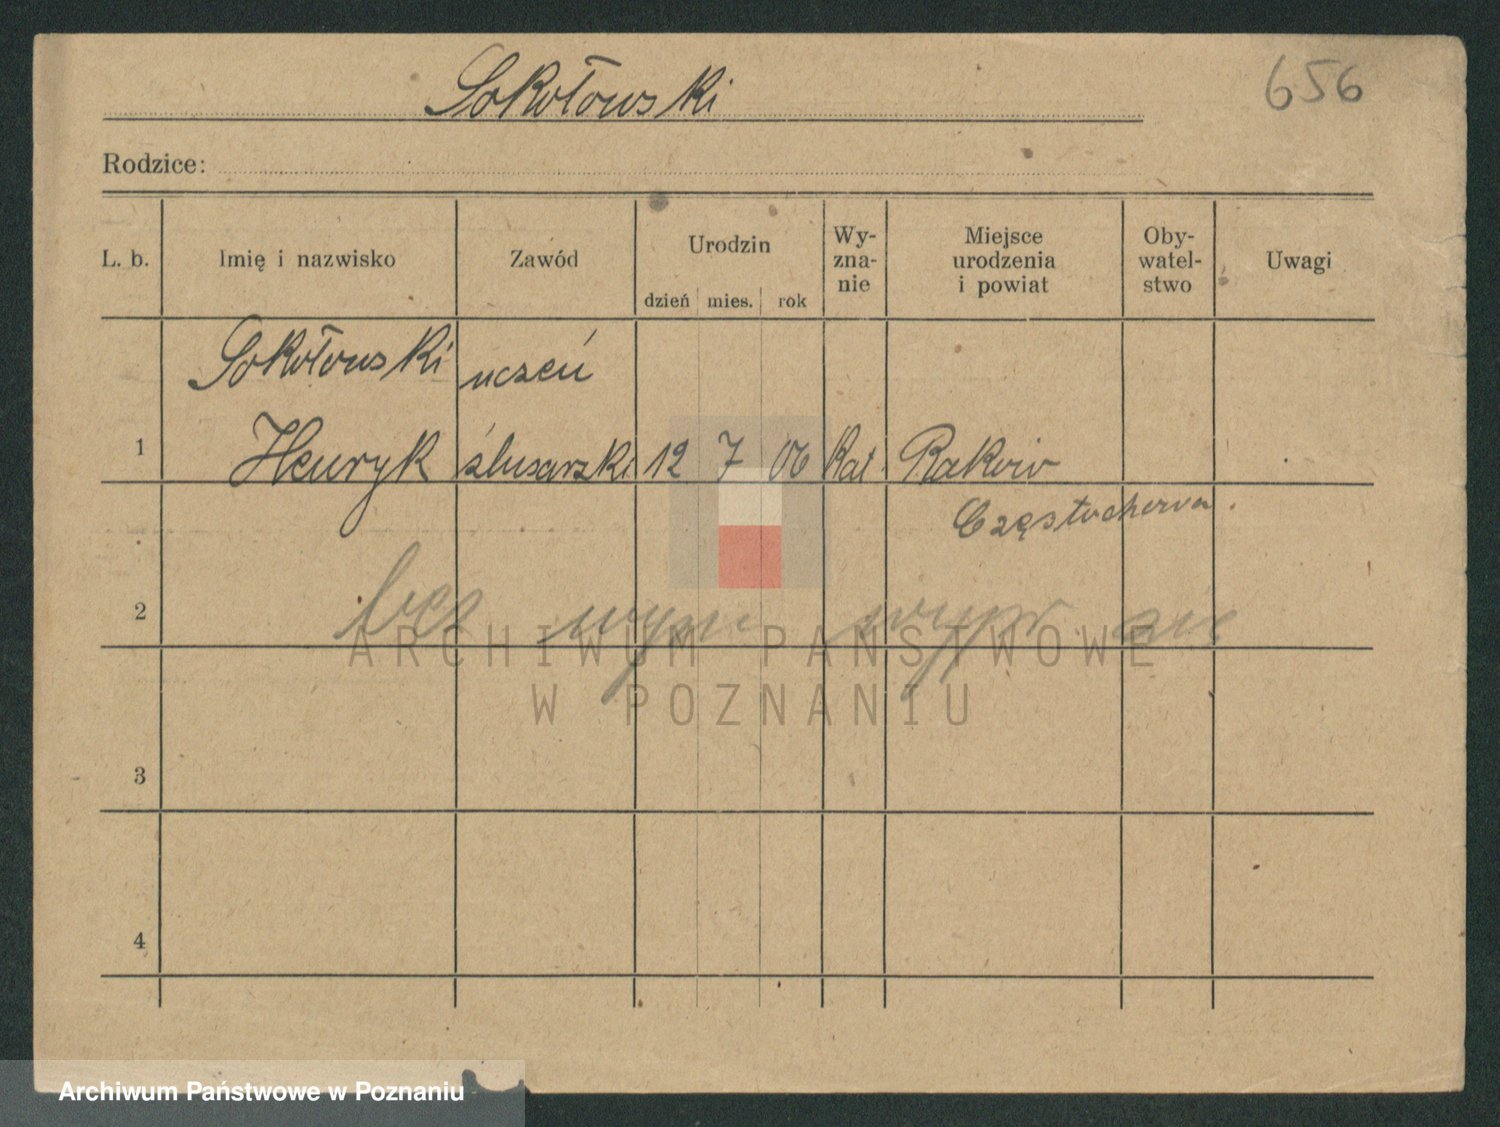 Sokołowski
656
Rodzice:
L. b.
Imię i nazwisko
Zawód
Urodzin
dzień mies. rok
Wy-
zna-
nie
Miejsce
urodzenia
i powiat
Oby-
watel-
stwo
Uwagi
Sokołowski uczeń
1 Henryk ślusarski 12 7 06 Kat Raków
Częstochowa.
2 bez
3
4
ARCHIWUM PAŃSTWOWE
W POZNANIU
Archiwum Państwowe w Poznaniu